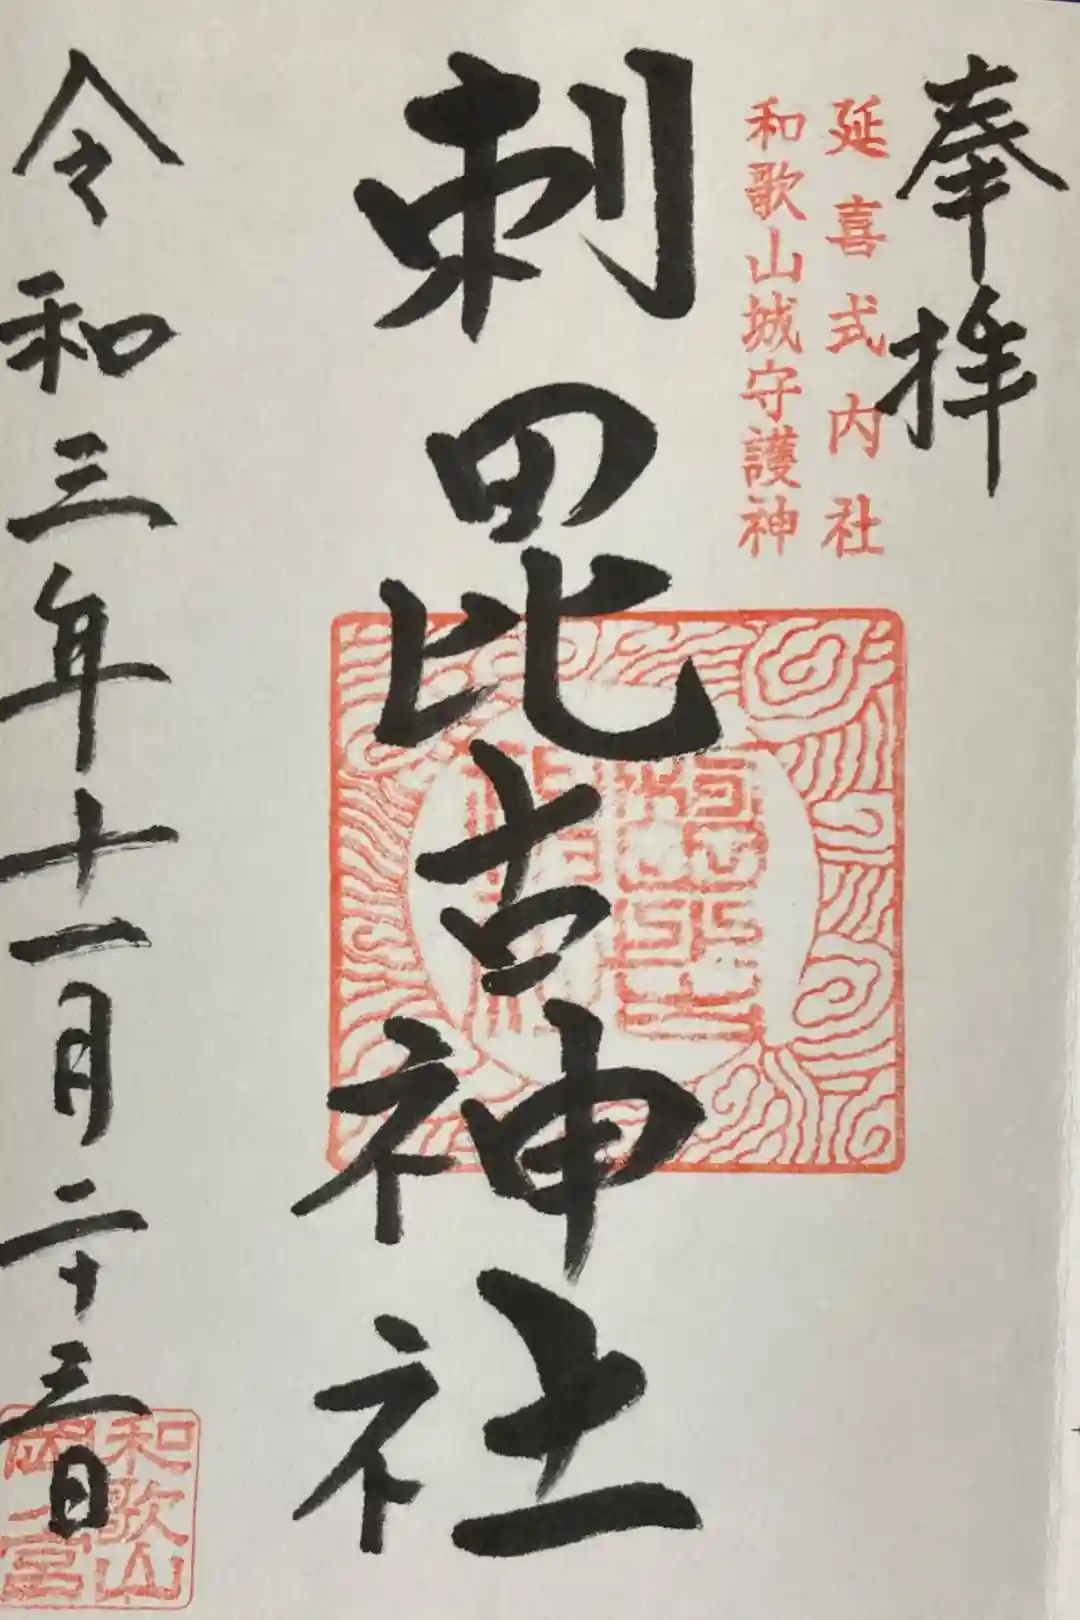 奉拝
延喜式内社
和歌山城守護神
刺田比古神社
令和三年十一月二十三日
和歌山
岡ノ宮